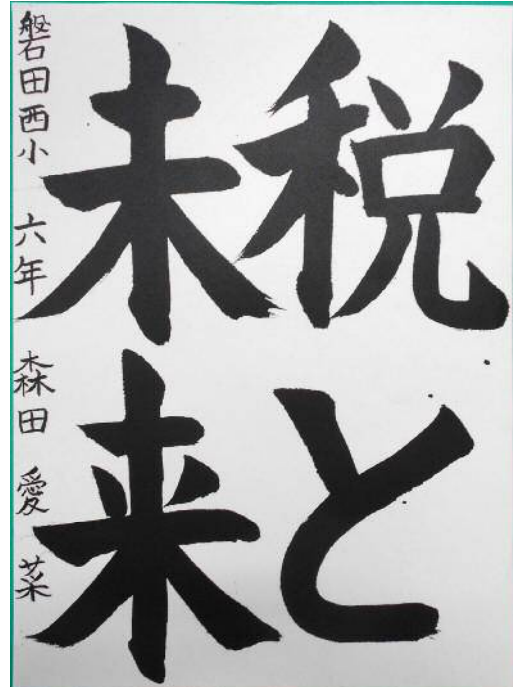 税と
未来
磐田西小 六年 森田 愛菜